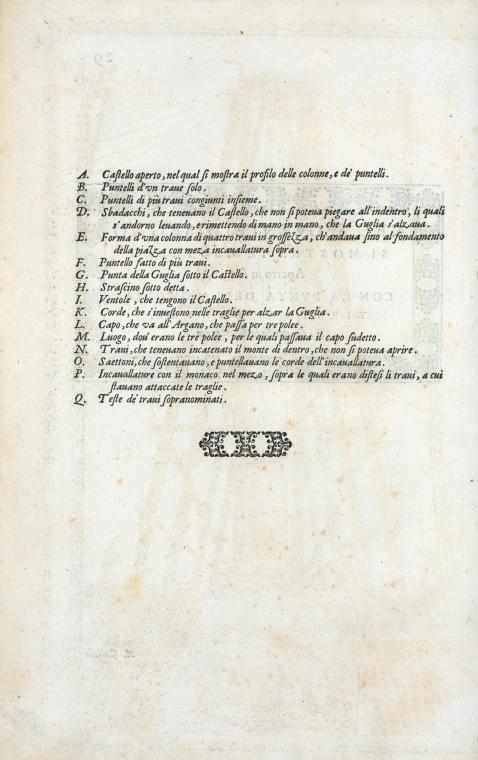 A. Castello aperto, nel qual si mostra il profilo delle colonne, e de' puntelli.
B. Puntelli d'vn traue solo.
C. Puntelli di più traui congiunti insieme.
D. Sbadacchi, che teneuano il Castello, che non si poteua piegare all'indentro, li quali
s'andorno leuando, e rimettendo di mano in mano, che la Guglia s'alzaua.
E. Forma d'vna colonna di quattro traui in grossezza, ch'andaua sino al fondamento
della piazza con meza incauallatura sopra.
F. Puntello fatto di più traui.
G. Punta della Guglia sotto il Castello.
H. Strascino sotto detta.
I. Ventole, che tengono il Castello.
K. Corde, che s'inuestono nelle traglie per alzar la Guglia.
L. Capo, che va all'Argano, che passa per tre polee.
M. Luogo, dou' erano le tre polee, per le quali passaua il capo sudetto.
N. Traui, che teneuano incatenato il monte di dentro, che non si poteua aprire.
O. Saettoni, che sostentauano, e puntellauano le corde dell'incauallatura.
P. Incauallature con il monaco nel mezo, sopra le quali erano distesi li traui, a cui
stauano attaccate le traglie.
Q. Teste de' traui sopranominati.